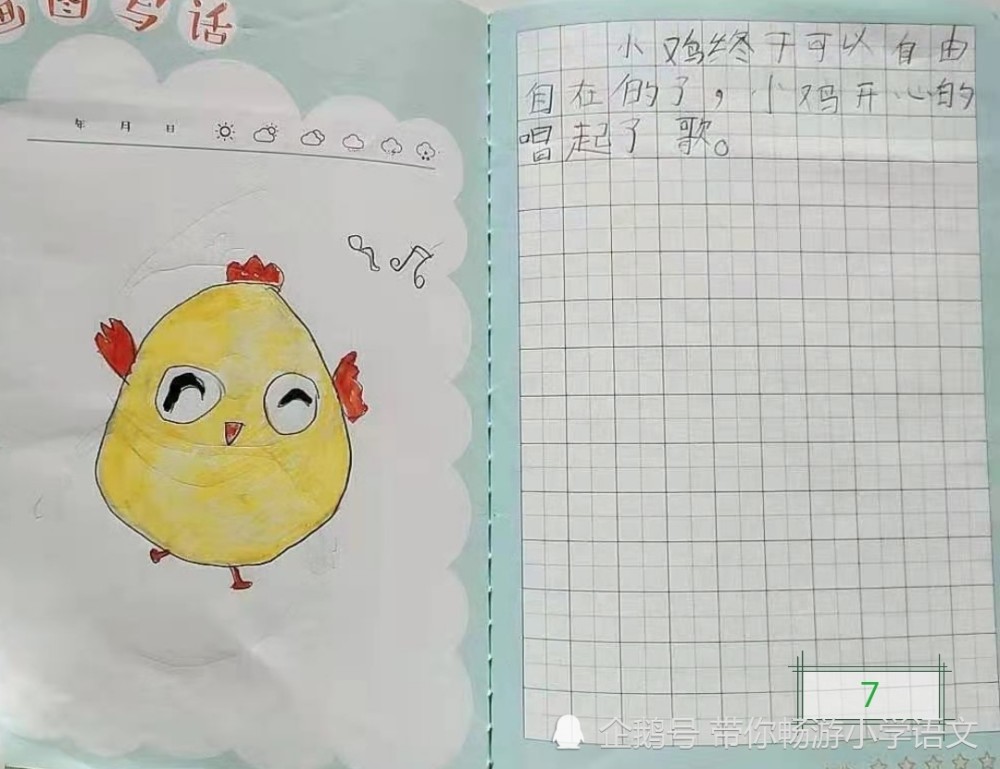 画图写话
年 月 日
小鸡终于可以自由
自在的了，小鸡开心的
唱起了歌。
7
企鹅号 带你畅游小学语文